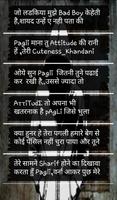 जो लडकिया मुझे Bad Boy केहेती
है,शायद उन्हें ए नही पता की
Pagli माना तु Attitude की रानी
हे ,तेरी Cuteness_Khandani
ओये सुन Pagli जितनी तुने पढाई
कर रखी है..उससे ज्यादा तो
ATTiTudE तो अपना भी
खतरनाक है pAgLi जिसे भुला
क्या हुनर हे तेरा पगली हमारे बेग से
कोई पेंसिल नहीं चुरा पाया और तुने
तेरे सामने Sharif होने का दिखावा
करता हुँ Pagli,वर्ना आकर पूछ मेरे